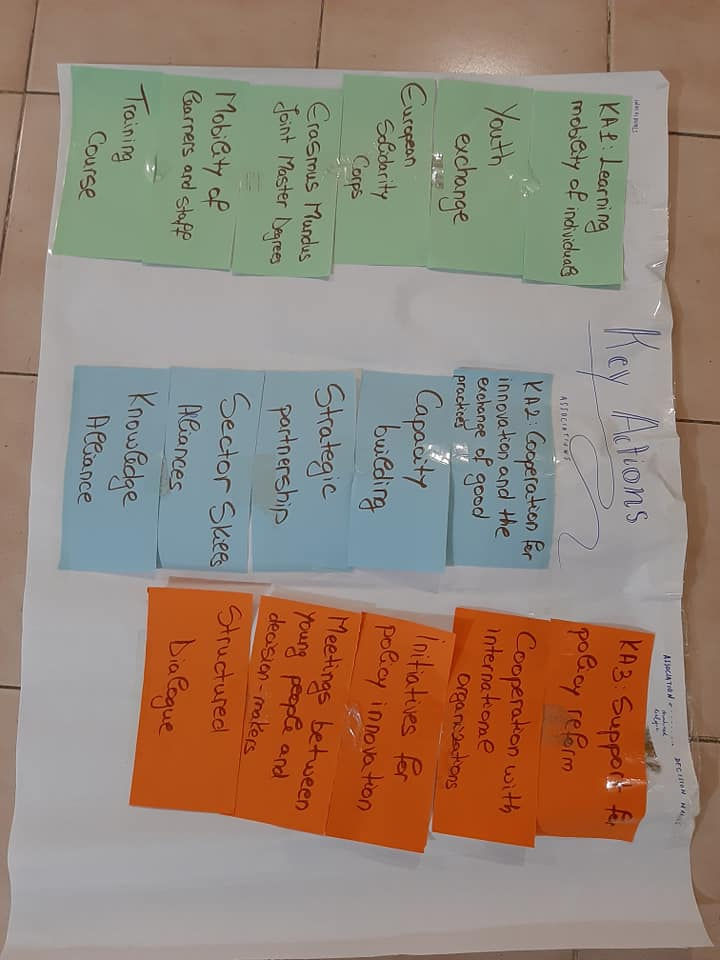 Key Actions
INDIVIDUALS
KA1: Learning
mobility of individuals
Youth
exchange
European
Solidarity
Corps
Erasmus Mundus
Joint Master Degrees
Mobility of
learners and staff
Training
Course
ASSOCIATIONS
KA2: Cooperation for
innovation and the
exchange of good
practices
Capacity
building
Strategic
partnership
Sector Skills
Alliances
Knowledge
Alliance
ASSOCIATION +
DECISION MAKERS
KA3: Support for
policy reform
Cooperation with
international
organizations
Initiatives for
policy innovation
Meetings between
young people and
decision-makers
Structured
Dialogue